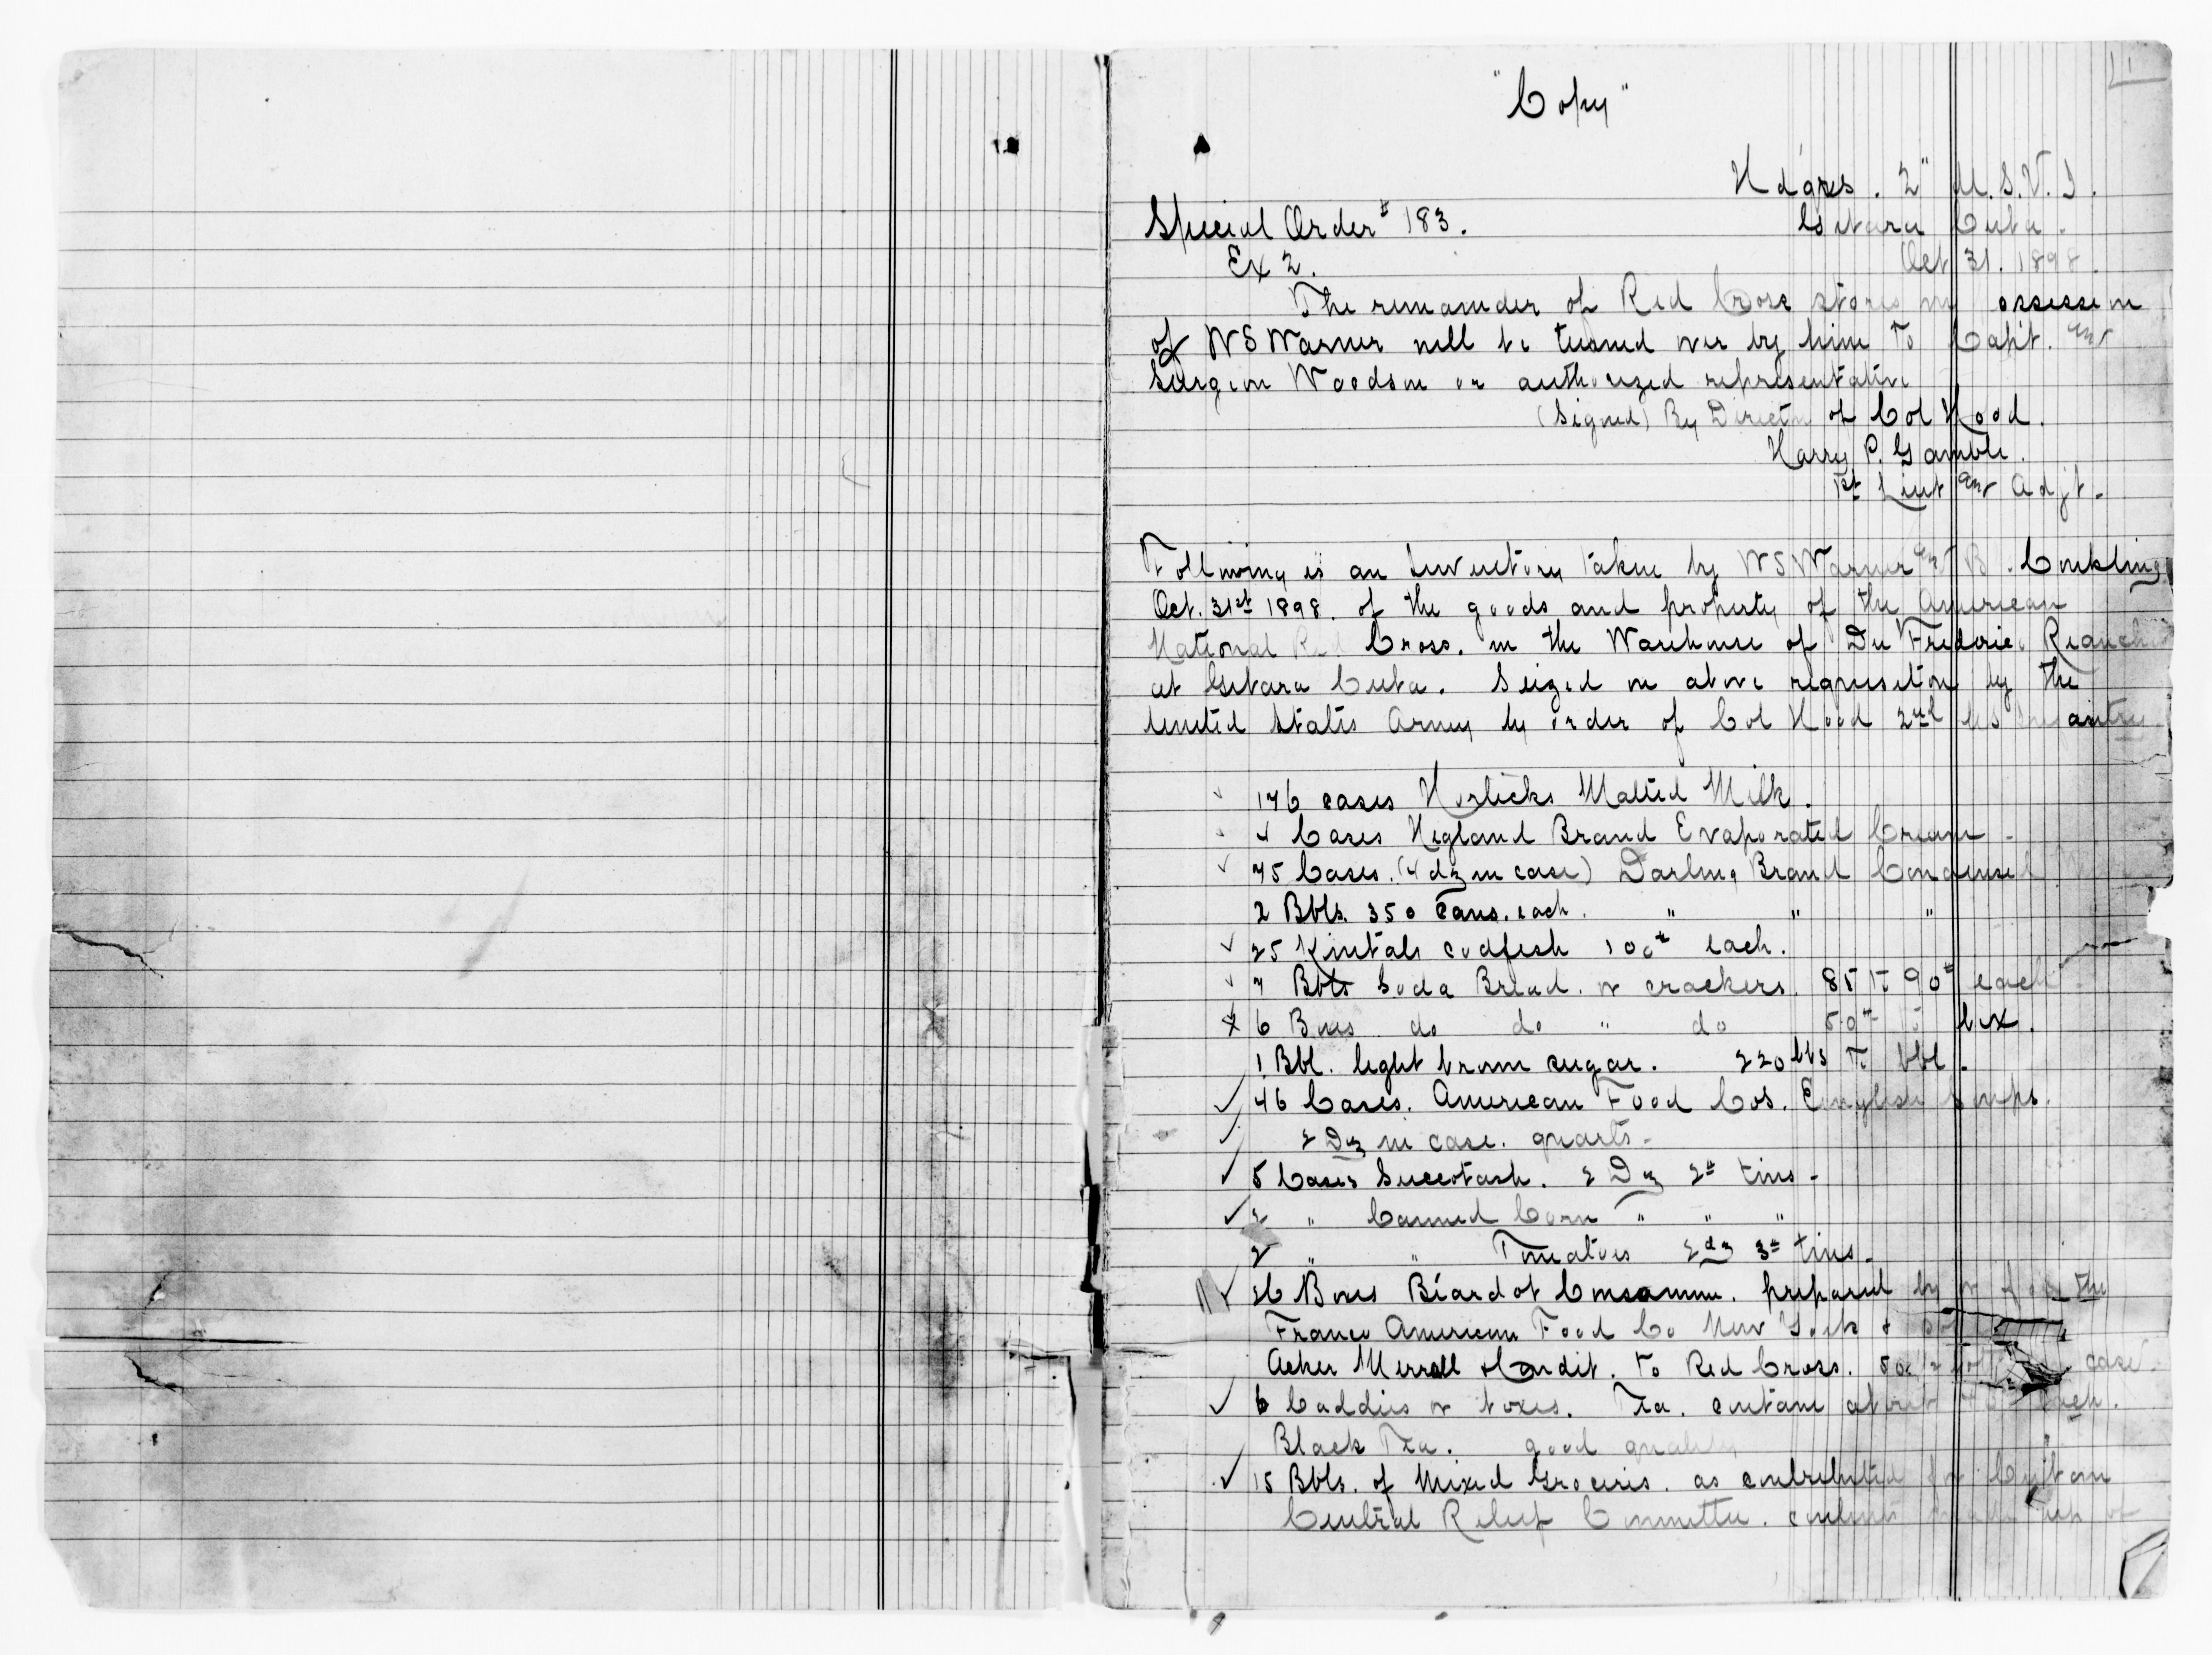 "Copy"
1
Hdqrs. 2" U.S.V.I.
Special Order # 183. Gibara Cuba.
Ex 2. Oct 31. 1898.
The remainder of Red Cross stores in possession
of W S Warner will be turned over by him to Capt. and
Surgeon Woodson or authorized representative
(Signed) By Direction of Col Hood.
Harry P. Gamble.
1st Lieut and Adjt.
Following is an Inventory taken by W S Warner and B. Conkling
Oct. 31st 1898. of the goods and property of the American
National Red Cross. in the Warehouse of Frederic
at Gibara Cuba. Seized on above requisition by the
United States Army by order of Col Hood 2nd US Infantry
176 cases Horlicks Malted Milk.
4 Cases Higland Brand Evaporated Cream -
75 Cases. (4 dz in case) Darling Brand Condensed
2 Bbls. 350 Cans. each. " " "
25 Kintals codfish 100# each.
7 Bbls Soda Bread. or crackers. 85 to 90# each
6 Boxes do do " do 50# to box.
1 Bbl. light brown sugar. 220 lbs to bbl.
46 Cases. American Food Cos. English Soups.
2 Dz in case. quarts -
5 Cases Succotash. 2 Dz 2# tins -
2 " Canned Corn " " "
2 " " Tomatoes 2 dz 3# tins -
Boxes Beardot Consomme. prepared by the
Franco American Food Co New York &
Acker Merrall & Condit. to Red Cross. case
6 Caddies or boxes. Tea. contain about each.
Black Tea. good quality
15 Bbls. of Mixed Groceries. as contributed for Cuban
Central Relief Committee. made up of